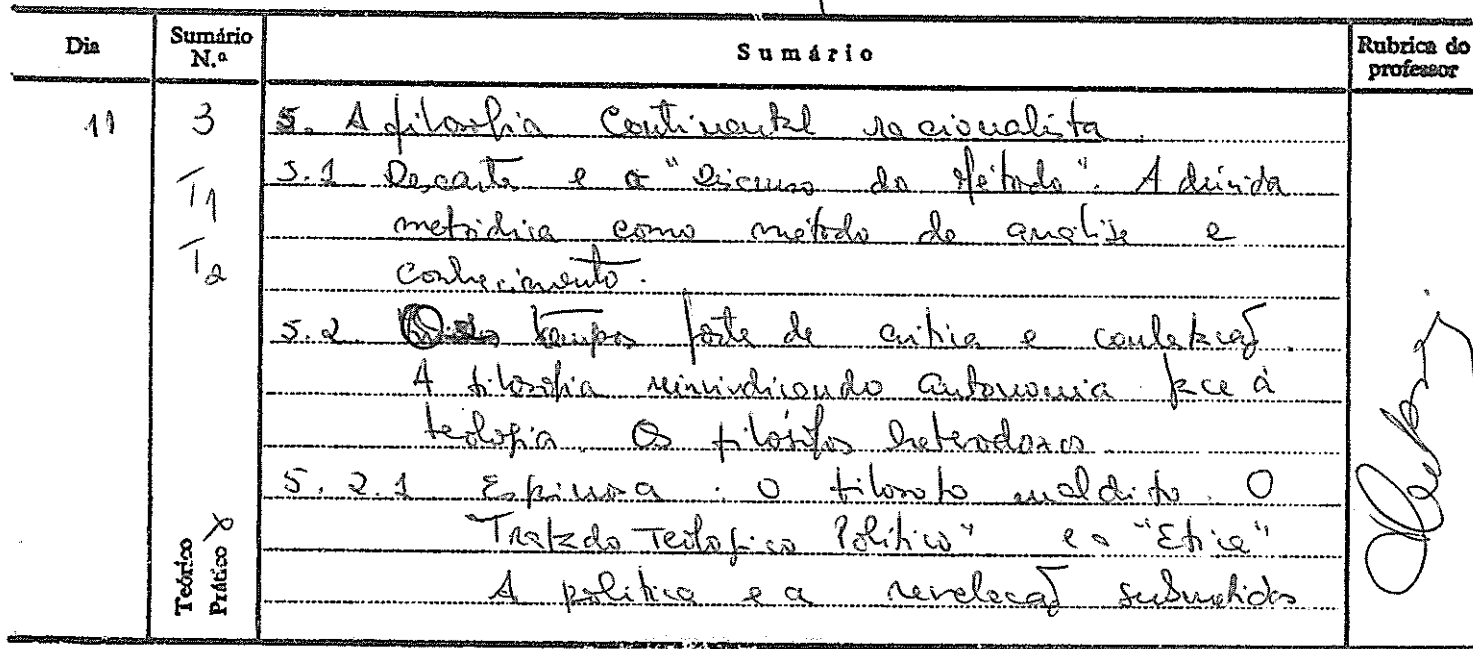 Dia
Sumário N.º
Sumário
Rubrica do professor
11
3
T1
T2
Teórico
Prático x
5. A filosofia Continental racionalista.
5.1 Descartes e o "Discurso do Método". A dúvida
metódica como método de análise e
conhecimento.
5.2. tempos forte de crítica e contestação.
A filosofia reinvindicando autonomia face à
teologia. Os filósofos heterodoxos.
5.2.1 Espinosa: o filosofo maldito. O
Tratado Teologico Politico" e a "Etica"
A politica e a revelação submetidas